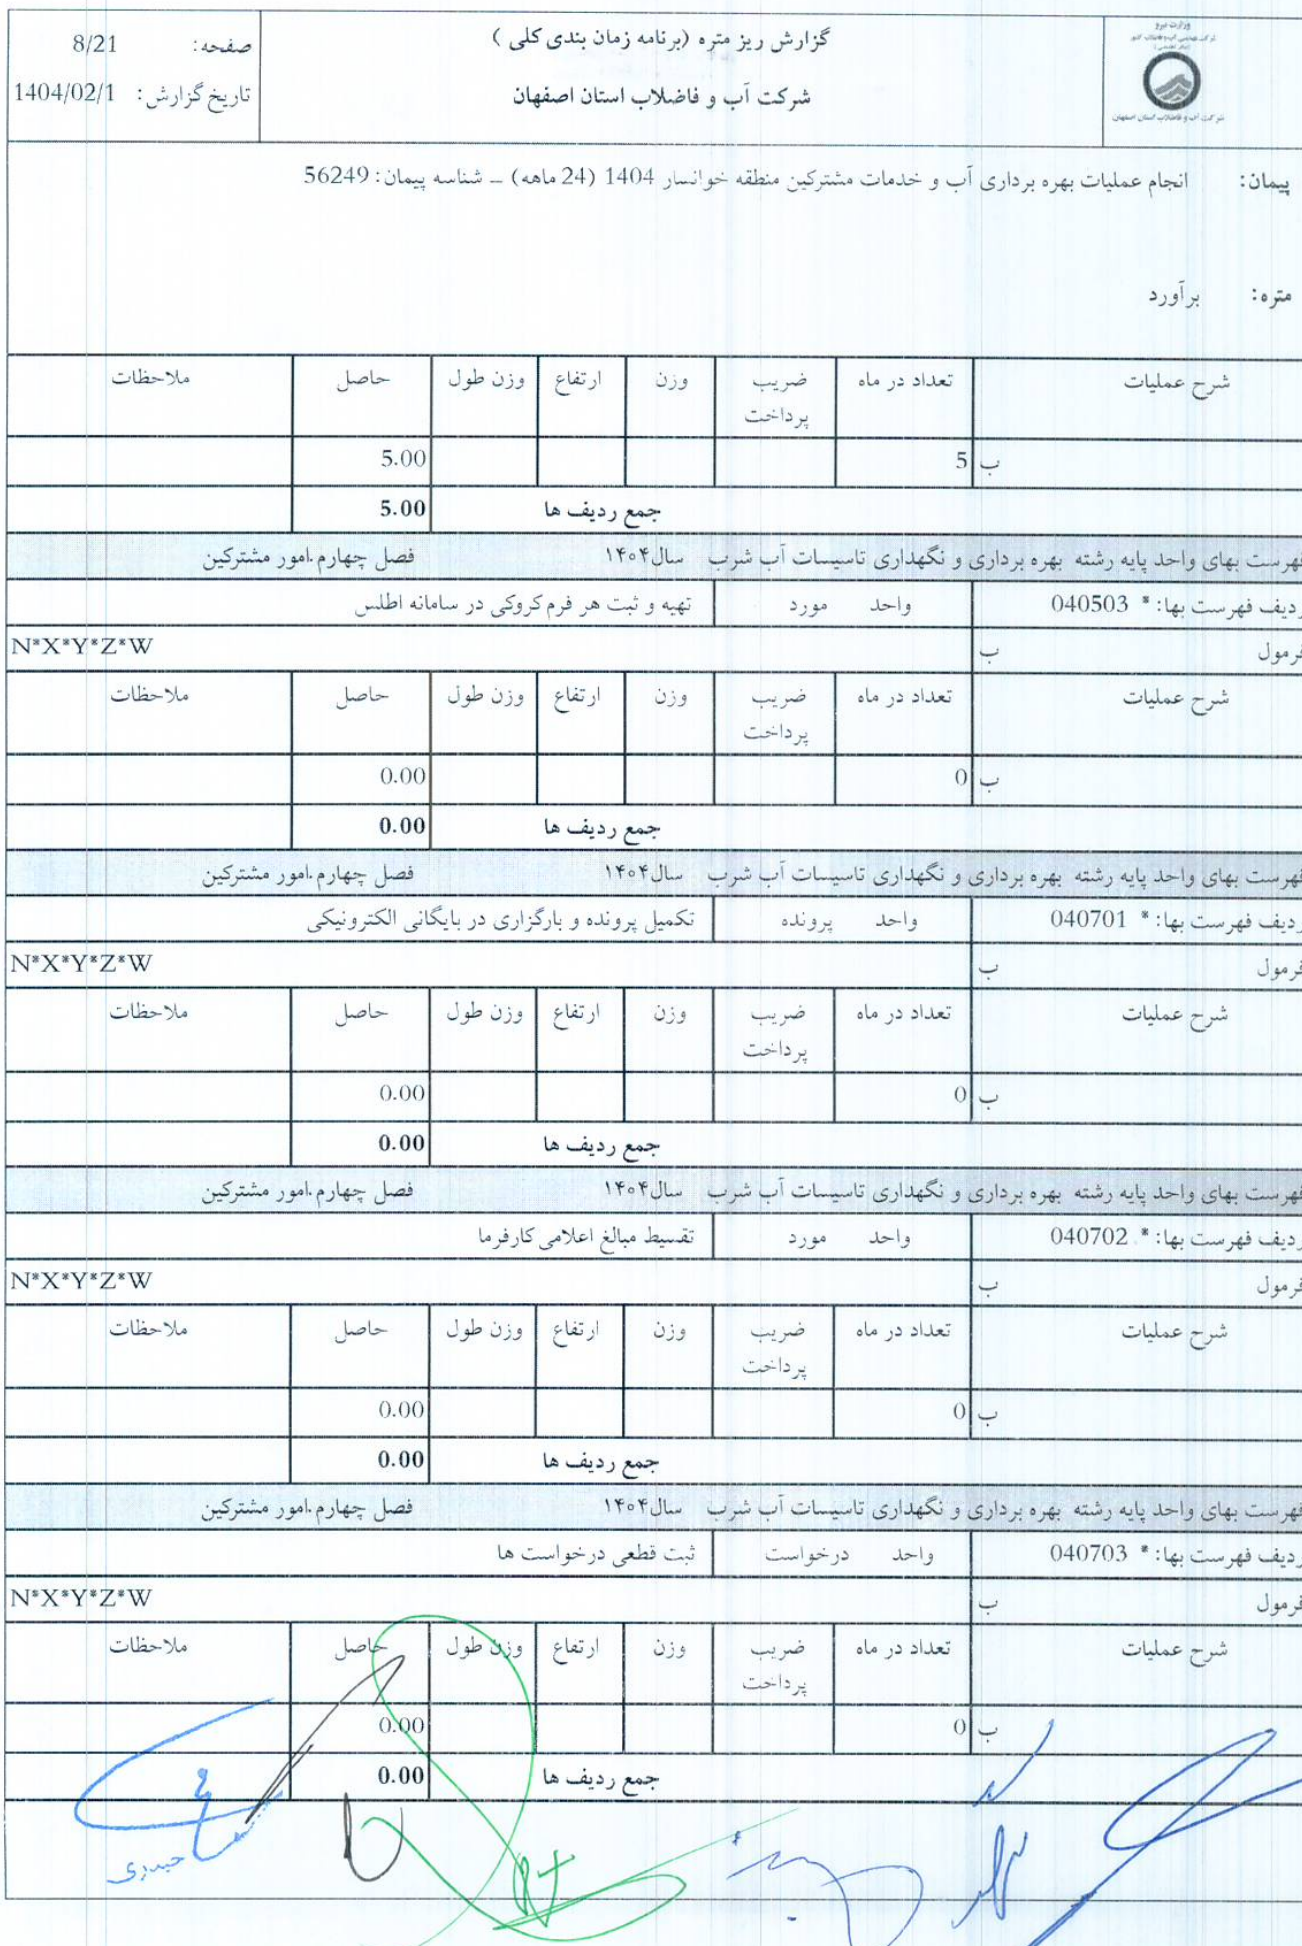 وزارت نیرو
شرکت آب و فاضلاب استان اصفهان
گزارش ریز متره (برنامه زمان بندی کلی )
شرکت آب و فاضلاب استان اصفهان
صفحه: 8/21
تاریخ گزارش: 1404/02/1
پیمان: انجام عملیات بهره برداری آب و خدمات مشترکین منطقه خوانسار 1404 (24 ماهه) – شناسه پیمان: 56249
متره: برآورد
شرح عملیات تعداد در ماه ضریب پرداخت وزن ارتفاع وزن طول حاصل ملاحظات
ب 5 5.00
جمع ردیف ها 5.00
فهرست بهای واحد پایه رشته بهره برداری و نگهداری تاسیسات آب شرب سال۱۴۰۴ فصل چهارم.امور مشترکین
ردیف فهرست بها: * 040503 واحد مورد تهیه و ثبت هر فرم کروکی در سامانه اطلس
فرمول ب N*X*Y*Z*W
شرح عملیات تعداد در ماه ضریب پرداخت وزن ارتفاع وزن طول حاصل ملاحظات
ب 0 0.00
جمع ردیف ها 0.00
فهرست بهای واحد پایه رشته بهره برداری و نگهداری تاسیسات آب شرب سال۱۴۰۴ فصل چهارم.امور مشترکین
ردیف فهرست بها: * 040701 واحد پرونده تکمیل پرونده و بارگزاری در بایگانی الکترونیکی
فرمول ب N*X*Y*Z*W
شرح عملیات تعداد در ماه ضریب پرداخت وزن ارتفاع وزن طول حاصل ملاحظات
ب 0 0.00
جمع ردیف ها 0.00
فهرست بهای واحد پایه رشته بهره برداری و نگهداری تاسیسات آب شرب سال۱۴۰۴ فصل چهارم.امور مشترکین
ردیف فهرست بها: * 040702 واحد مورد تقسیط مبالغ اعلامی کارفرما
فرمول ب N*X*Y*Z*W
شرح عملیات تعداد در ماه ضریب پرداخت وزن ارتفاع وزن طول حاصل ملاحظات
ب 0 0.00
جمع ردیف ها 0.00
فهرست بهای واحد پایه رشته بهره برداری و نگهداری تاسیسات آب شرب سال۱۴۰۴ فصل چهارم.امور مشترکین
ردیف فهرست بها: * 040703 واحد درخواست ثبت قطعی درخواست ها
فرمول ب N*X*Y*Z*W
شرح عملیات تعداد در ماه ضریب پرداخت وزن ارتفاع وزن طول حاصل ملاحظات
ب 0 0.00
جمع ردیف ها 0.00
حیدری